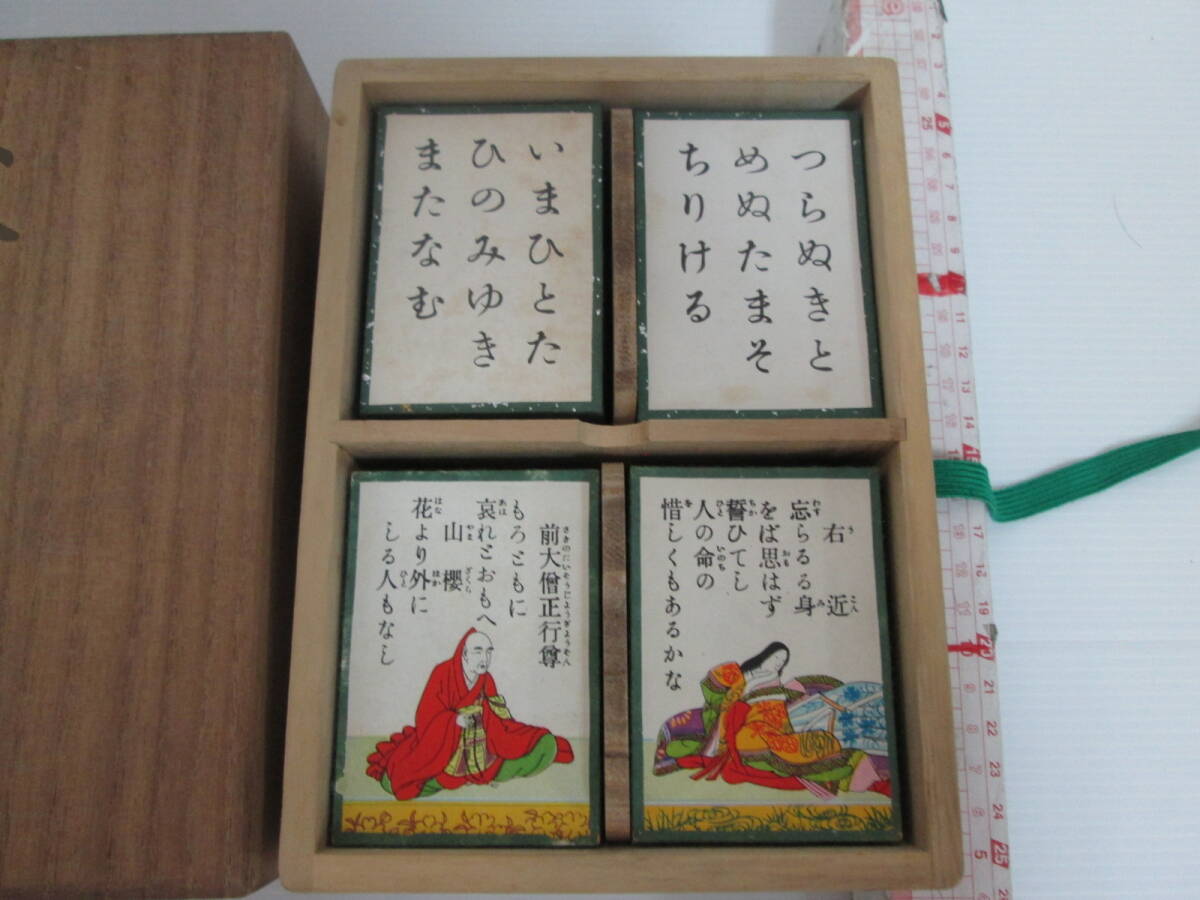 つらぬきと
めぬたまそ
ちりける
いまひとた
ひのみゆき
またなむ
右近
忘らるる身
をば思はず
誓ひてし
人の命の
惜しくもあるかな
前大僧正行尊
もろともに
哀れとおもへ
山櫻
花より外に
しる人もなし